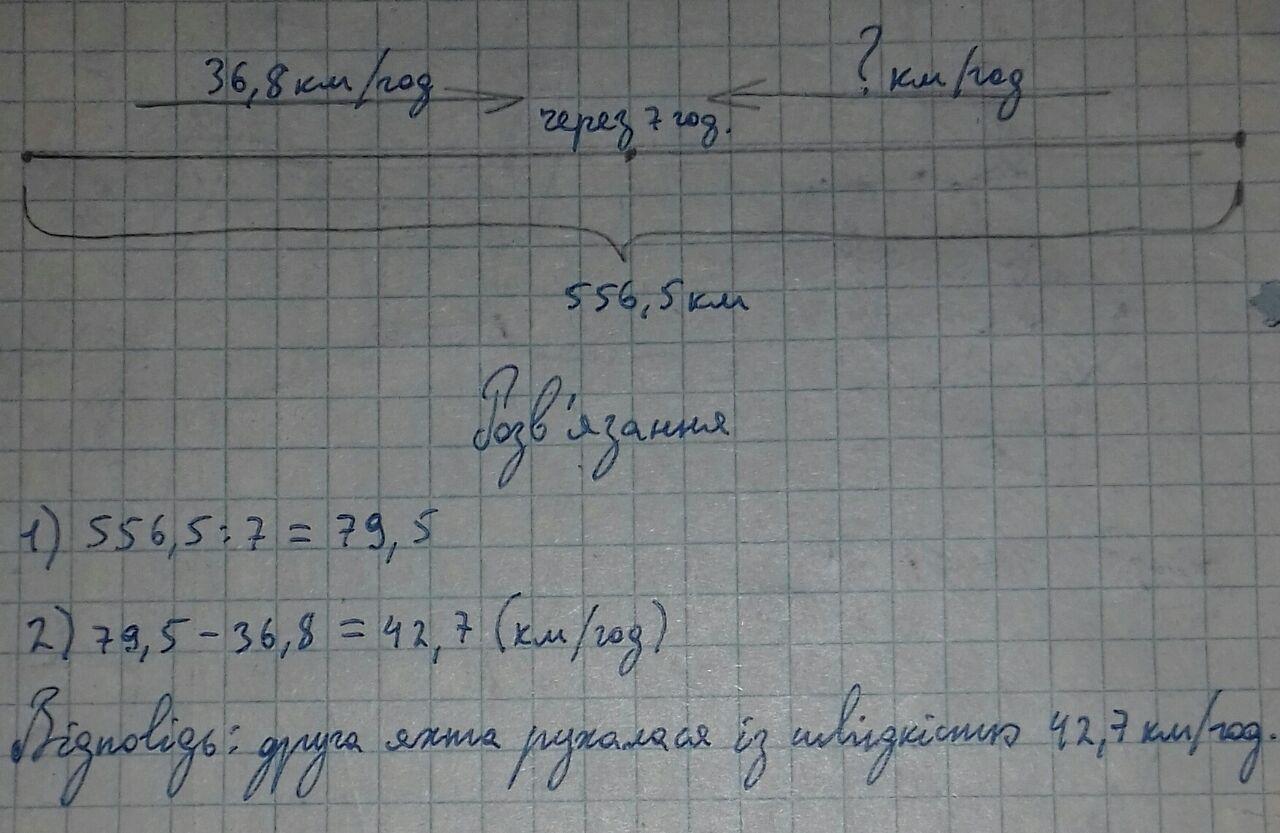 36,8 км/год ? км/год
через 7 год.
556,5 км
Розв'язання
1) 556,5 : 7 = 79,5
2) 79,5 - 36,8 = 42,7 (км/год)
Відповідь: друга яхта рухалася із швидкістю 42,7 км/год.